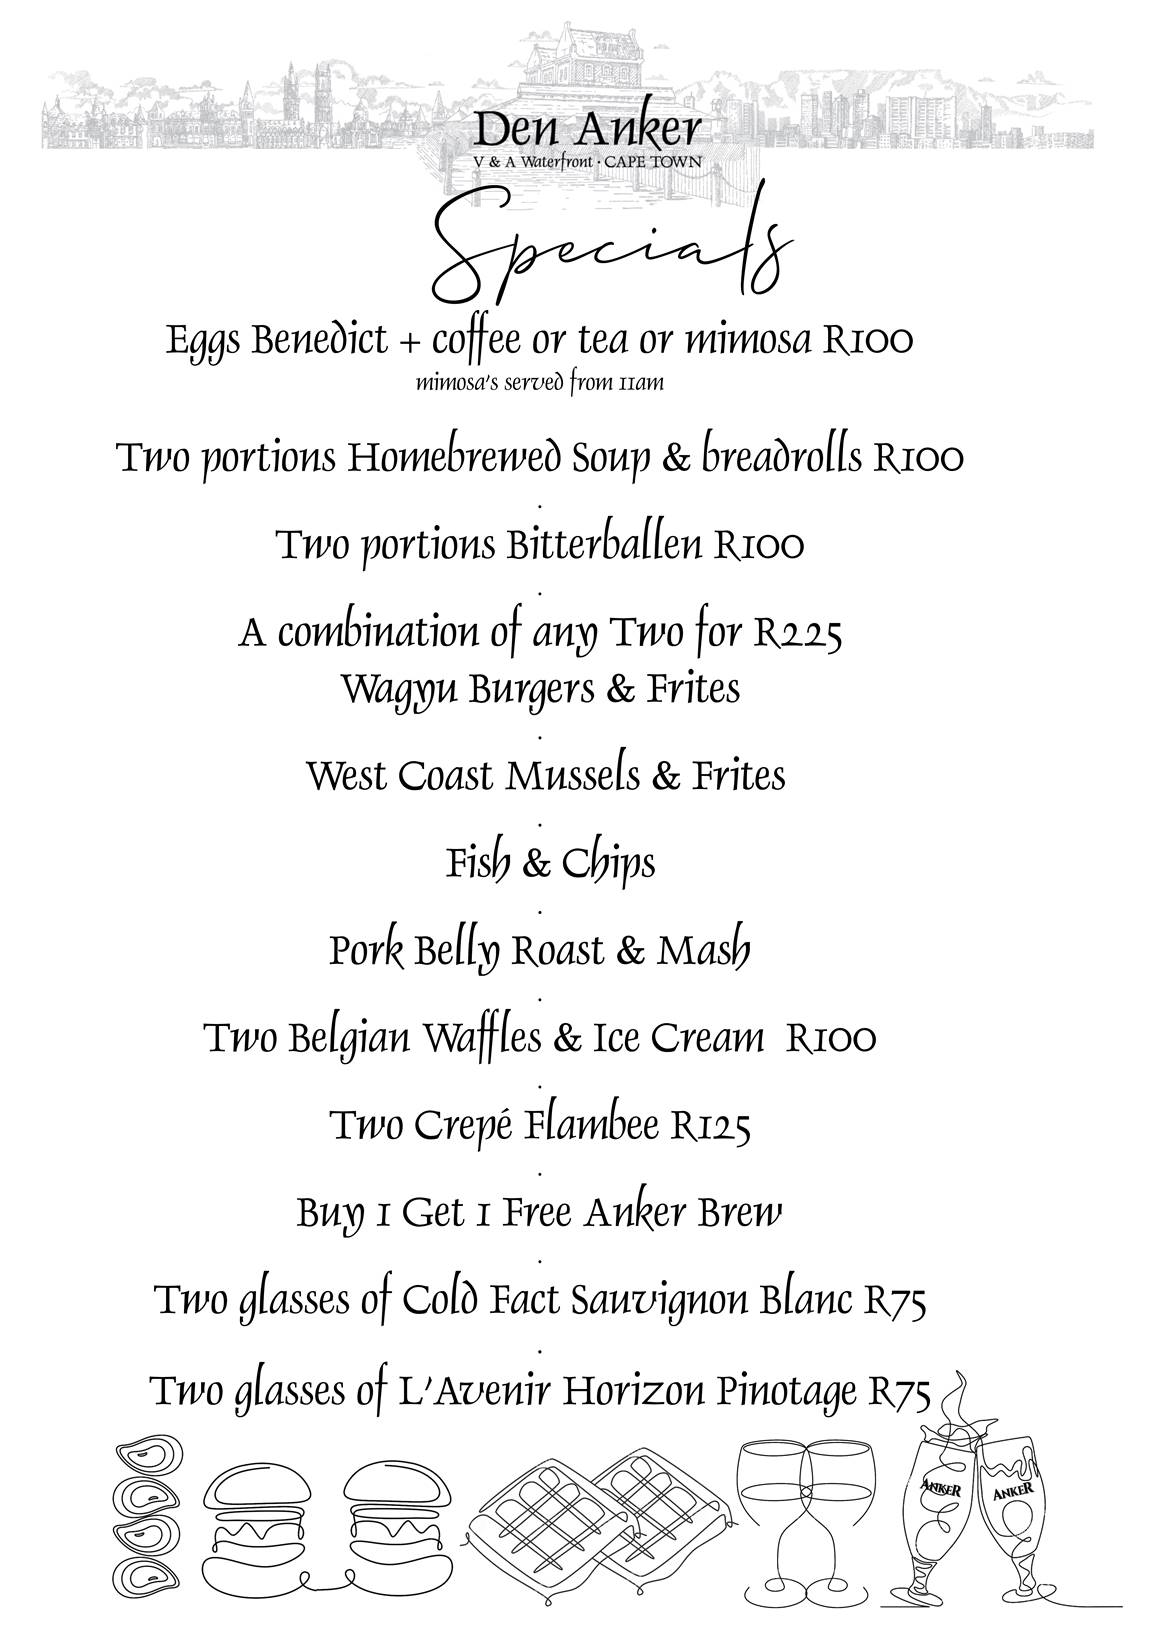 Den Anker
V & A Waterfront · CAPE TOWN
Specials
Eggs Benedict + coffee or tea or mimosa R100
mimosa's served from 11am
Two portions Homebrewed Soup & breadrolls R100
.
Two portions Bitterballen R100
.
A combination of any Two for R225
Wagyu Burgers & Frites
.
West Coast Mussels & Frites
.
Fish & Chips
.
Pork Belly Roast & Mash
.
Two Belgian Waffles & Ice Cream R100
.
Two Crepé Flambee R125
.
Buy 1 Get 1 Free Anker Brew
.
Two glasses of Cold Fact Sauvignon Blanc R75
.
Two glasses of L'Avenir Horizon Pinotage R75
ANKER ANKER